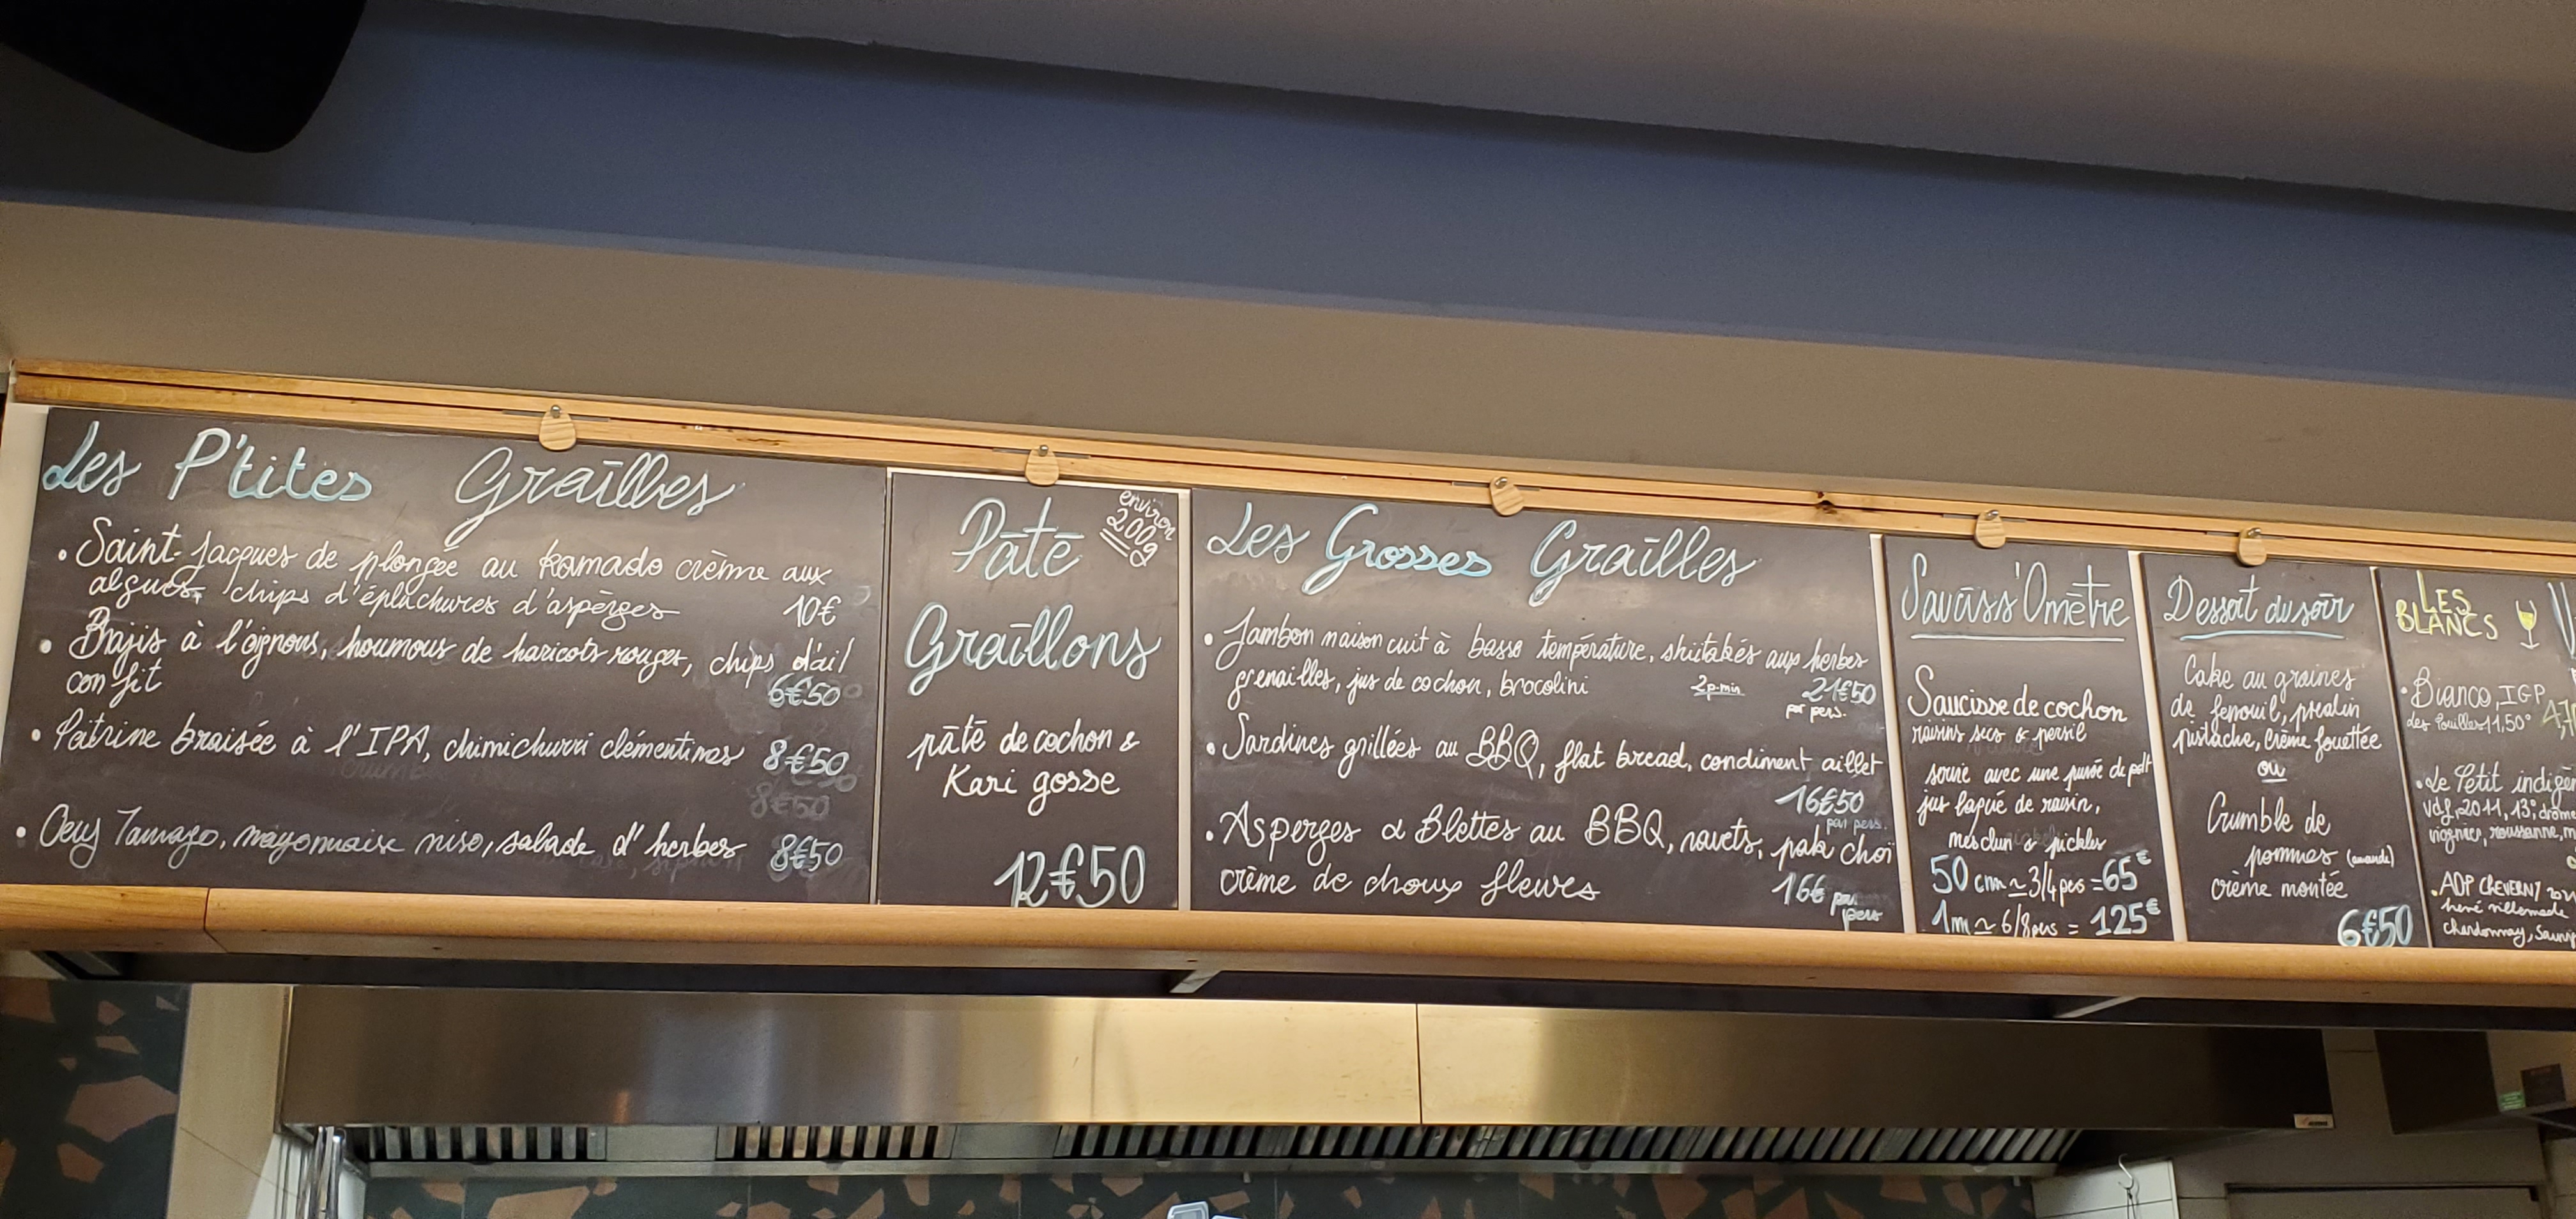 Les P'tites Grailles
• Saint-Jacques de plongée au kamado crème aux
algues, chips d'épluchures d'asperges 10€
• Bajis à l'oignons, houmous de haricots rouges, chips d'ail
confit 6€50
• Poitrine braisée à l'IPA, chimichurri clémentines 8€50
• Oeuf Tamago, mayonnaise miso, salade d'herbes 8€50
Pâté
environ
200g
Graillons
pâté de cochon &
Kari gosse
12€50
Les Grosses Grailles
• Jambon maison cuit à basse température, shiitakés aux herbes
grenailles, jus de cochon, brocolini 2p.min 21€50
par pers.
• Sardines grillées au BBQ, flat bread, condiment aillet
16€50
par pers.
• Asperges & Blettes au BBQ, navets, pak choï
crème de choux fleurs 16€ par
pers
Sauciss'Omètre
Saucisse de cochon
raisins secs & persil
servie avec une purée de pdt
jus laqué de raisin,
mesclun & pickles
50 cm ≃ 3/4 pers = 65€
1m ≃ 6/8 pers = 125€
Dessert du soir
Cake au graines
de fenouil, pralin
pistache, crème fouettée
ou
Crumble de
pommes (amande)
crème montée
6€50
LES
BLANCS
• Bianco, IGP
des Pouilles 11,50°
• Le Petit indigèn
vdf, 2011, 13°, drôme
viognier, roussanne, m
• AOP CHEVERNY
hervé villemade
chardonnay, sauvig